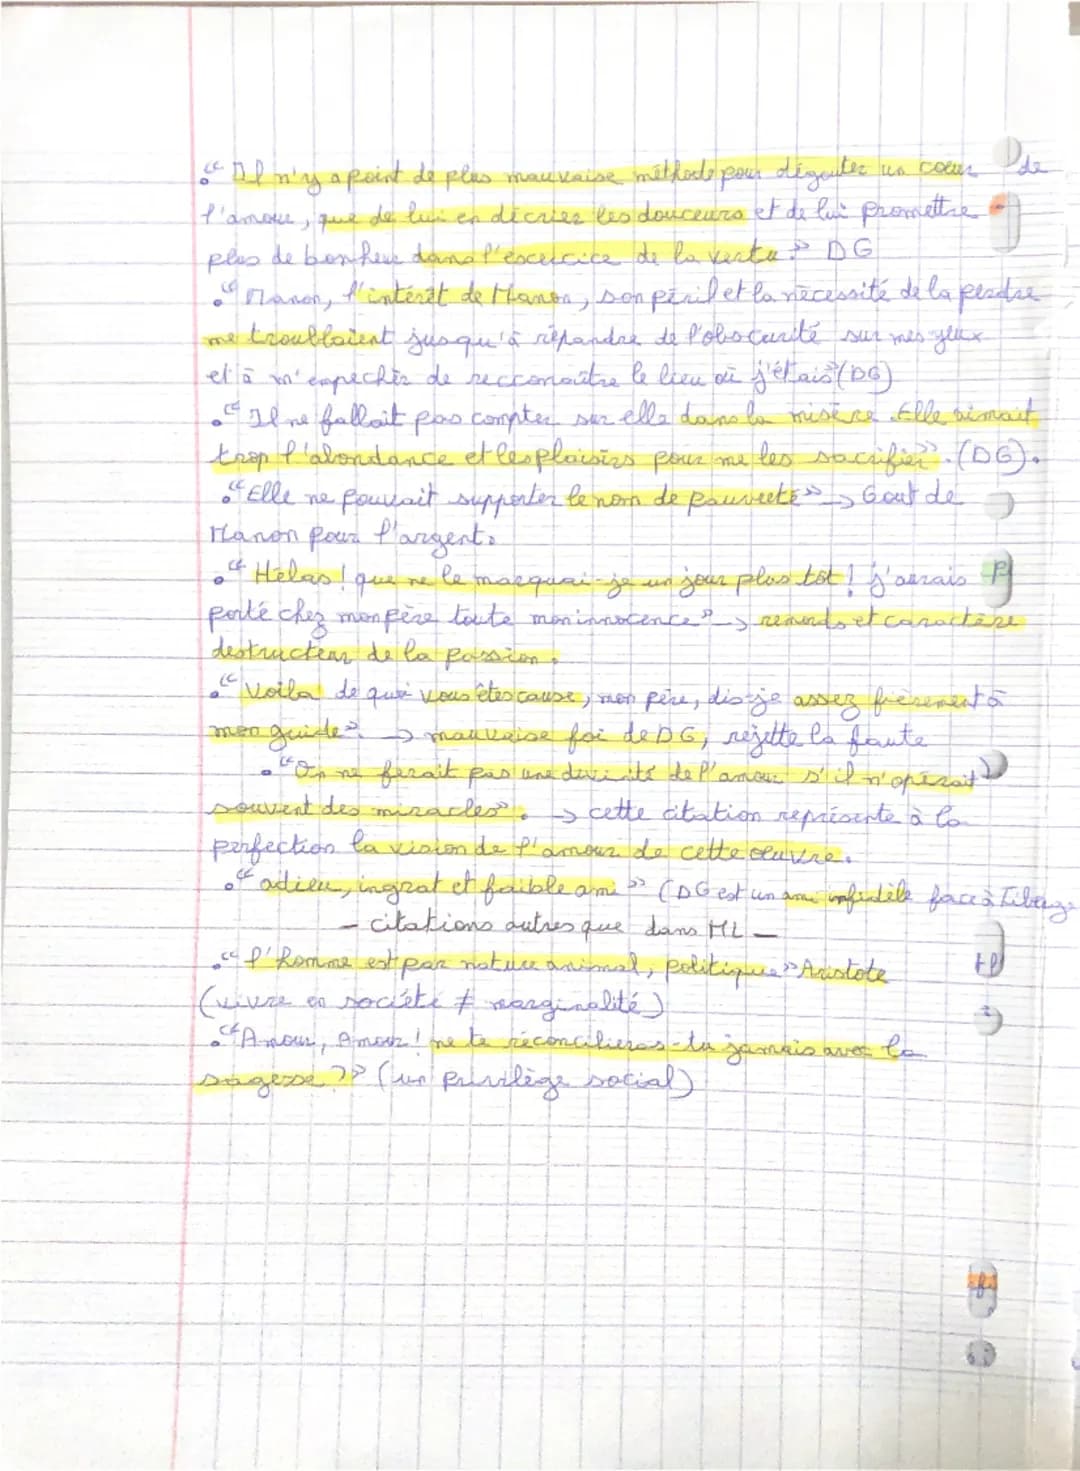 • "Il n'y a point de plus mauvaise méthode pour dégouter un coeur de
l'amour, que de lui en décrier les douceurs et de lui promettre
plus de bonheur dans l'excercice de la vertu." DG
• "Manon, l'intérêt de Manon, son péril et la nécessité de la perdre
me troublaient jusqu'à répandre de l'obscurité sur mes yeux
et à m'empechêr de recconaître le lieu où j'étais" (DG)
• "Il ne fallait pas compter sur elle dans la misère. Elle aimait
trop l'abondance et les plaisirs pour me les sacrifier". (DG).
• "Elle ne pouvait supporter le nom de pauvreté" → Gout de
Manon pour l'argent.
• "Hélas ! que ne le marquai-je un jour plus tôt ! j'aurais
porté chez mon père toute mon innocence" → remords et caractère
destructeur de la passion.
• "Voila de quoi vous êtes cause, mon père, dis-je assez fièrement à
mon guide". → mauvaise foi de DG, rejette la faute
• "On ne ferait pas une divinité de l'amour s'il n'opérait
souvent des miracles". → cette citation représente à la
perfection la vision de l'amour de cette œuvre.
• "adieu, ingrat et faible ami" (DG est un ami infidèle face à Tiberge
- citations autres que dans ML -
• "l'homme est par nature animal, politique" Aristote
(vivre en société ≠ marginalité)
• "Amour, Amour ! ne te réconcilieras-tu jamais avec la
sagesse ?" (un privilège social)